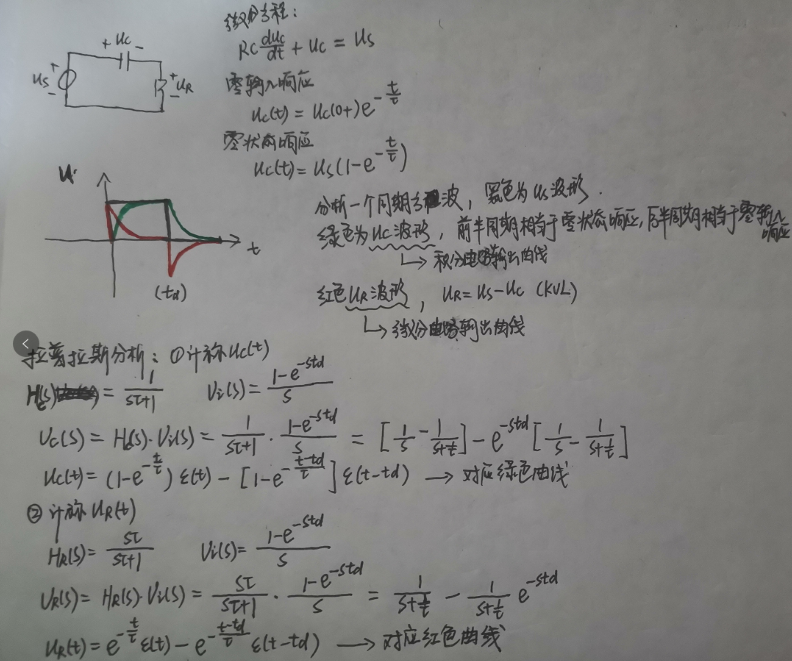 微分方程:
RC duc/dt + uc = us
+ uc -
us + -
+ uR -
零输入响应
uc(t) = uc(0+)e^(-t/τ)
零状态响应
uc(t) = us(1-e^(-t/τ))
u
t
(td)
分析一个周期方波, 黑色为us波形.
绿色为uc波形, 前半周期相当于零状态响应, 后半周期相当于零输入响应
↳ 积分电路输出曲线
红色uR波形, uR = us - uc (KVL)
↳ 微分电路输出曲线
拉普拉斯分析: ①计算uc(t)
Hc(s) = 1/(sτ+1) Vi(s) = (1-e^(-std))/s
Uc(s) = Hc(s)·Vi(s) = 1/(sτ+1) · (1-e^(-std))/s = [1/s - 1/(s+1/τ)] - e^(-std)[1/s - 1/(s+1/τ)]
uc(t) = (1-e^(-t/τ)) ε(t) - [1-e^(-(t-td)/τ)] ε(t-td) → 对应绿色曲线
②计算uR(t)
HR(s) = sτ/(sτ+1) Vi(s) = (1-e^(-std))/s
UR(s) = HR(s)·Vi(s) = sτ/(sτ+1) · (1-e^(-std))/s = 1/(s+1/τ) - 1/(s+1/τ) e^(-std)
uR(t) = e^(-t/τ) ε(t) - e^(-(t-td)/τ) ε(t-td) → 对应红色曲线